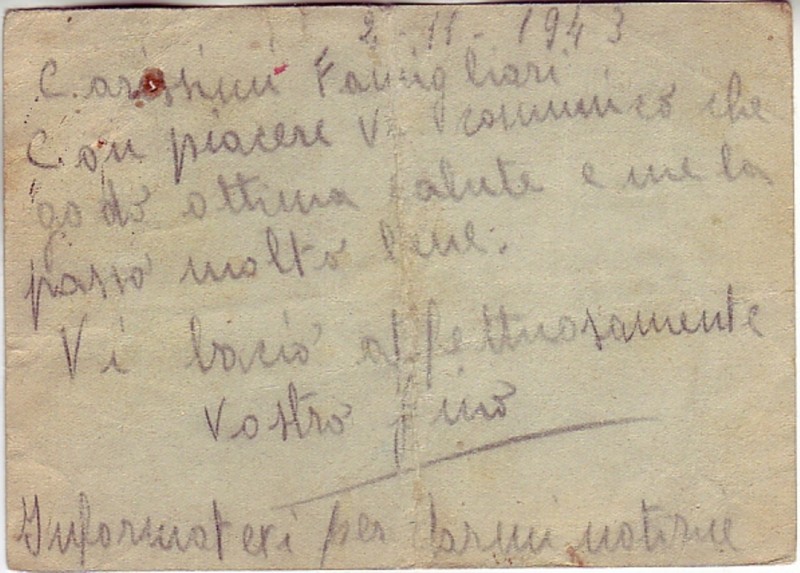 2-11-1943
Carissimi Famigliari
Con piacere Vi comunico che
godo ottima salute e me la
passo molto bene.
Vi bacio affettuosamente
Vostro Pino
Informatevi per darmi notizie